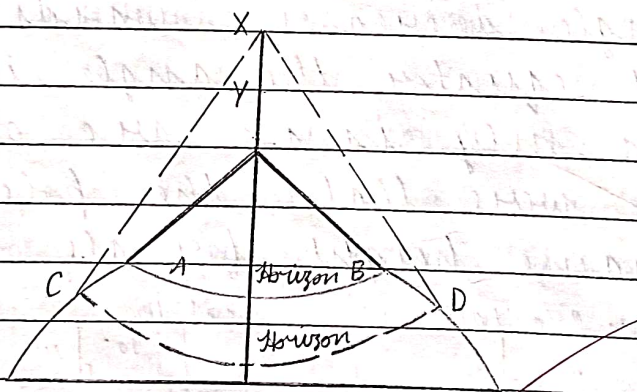 X
Y
A Horizon B
C D
Horizon